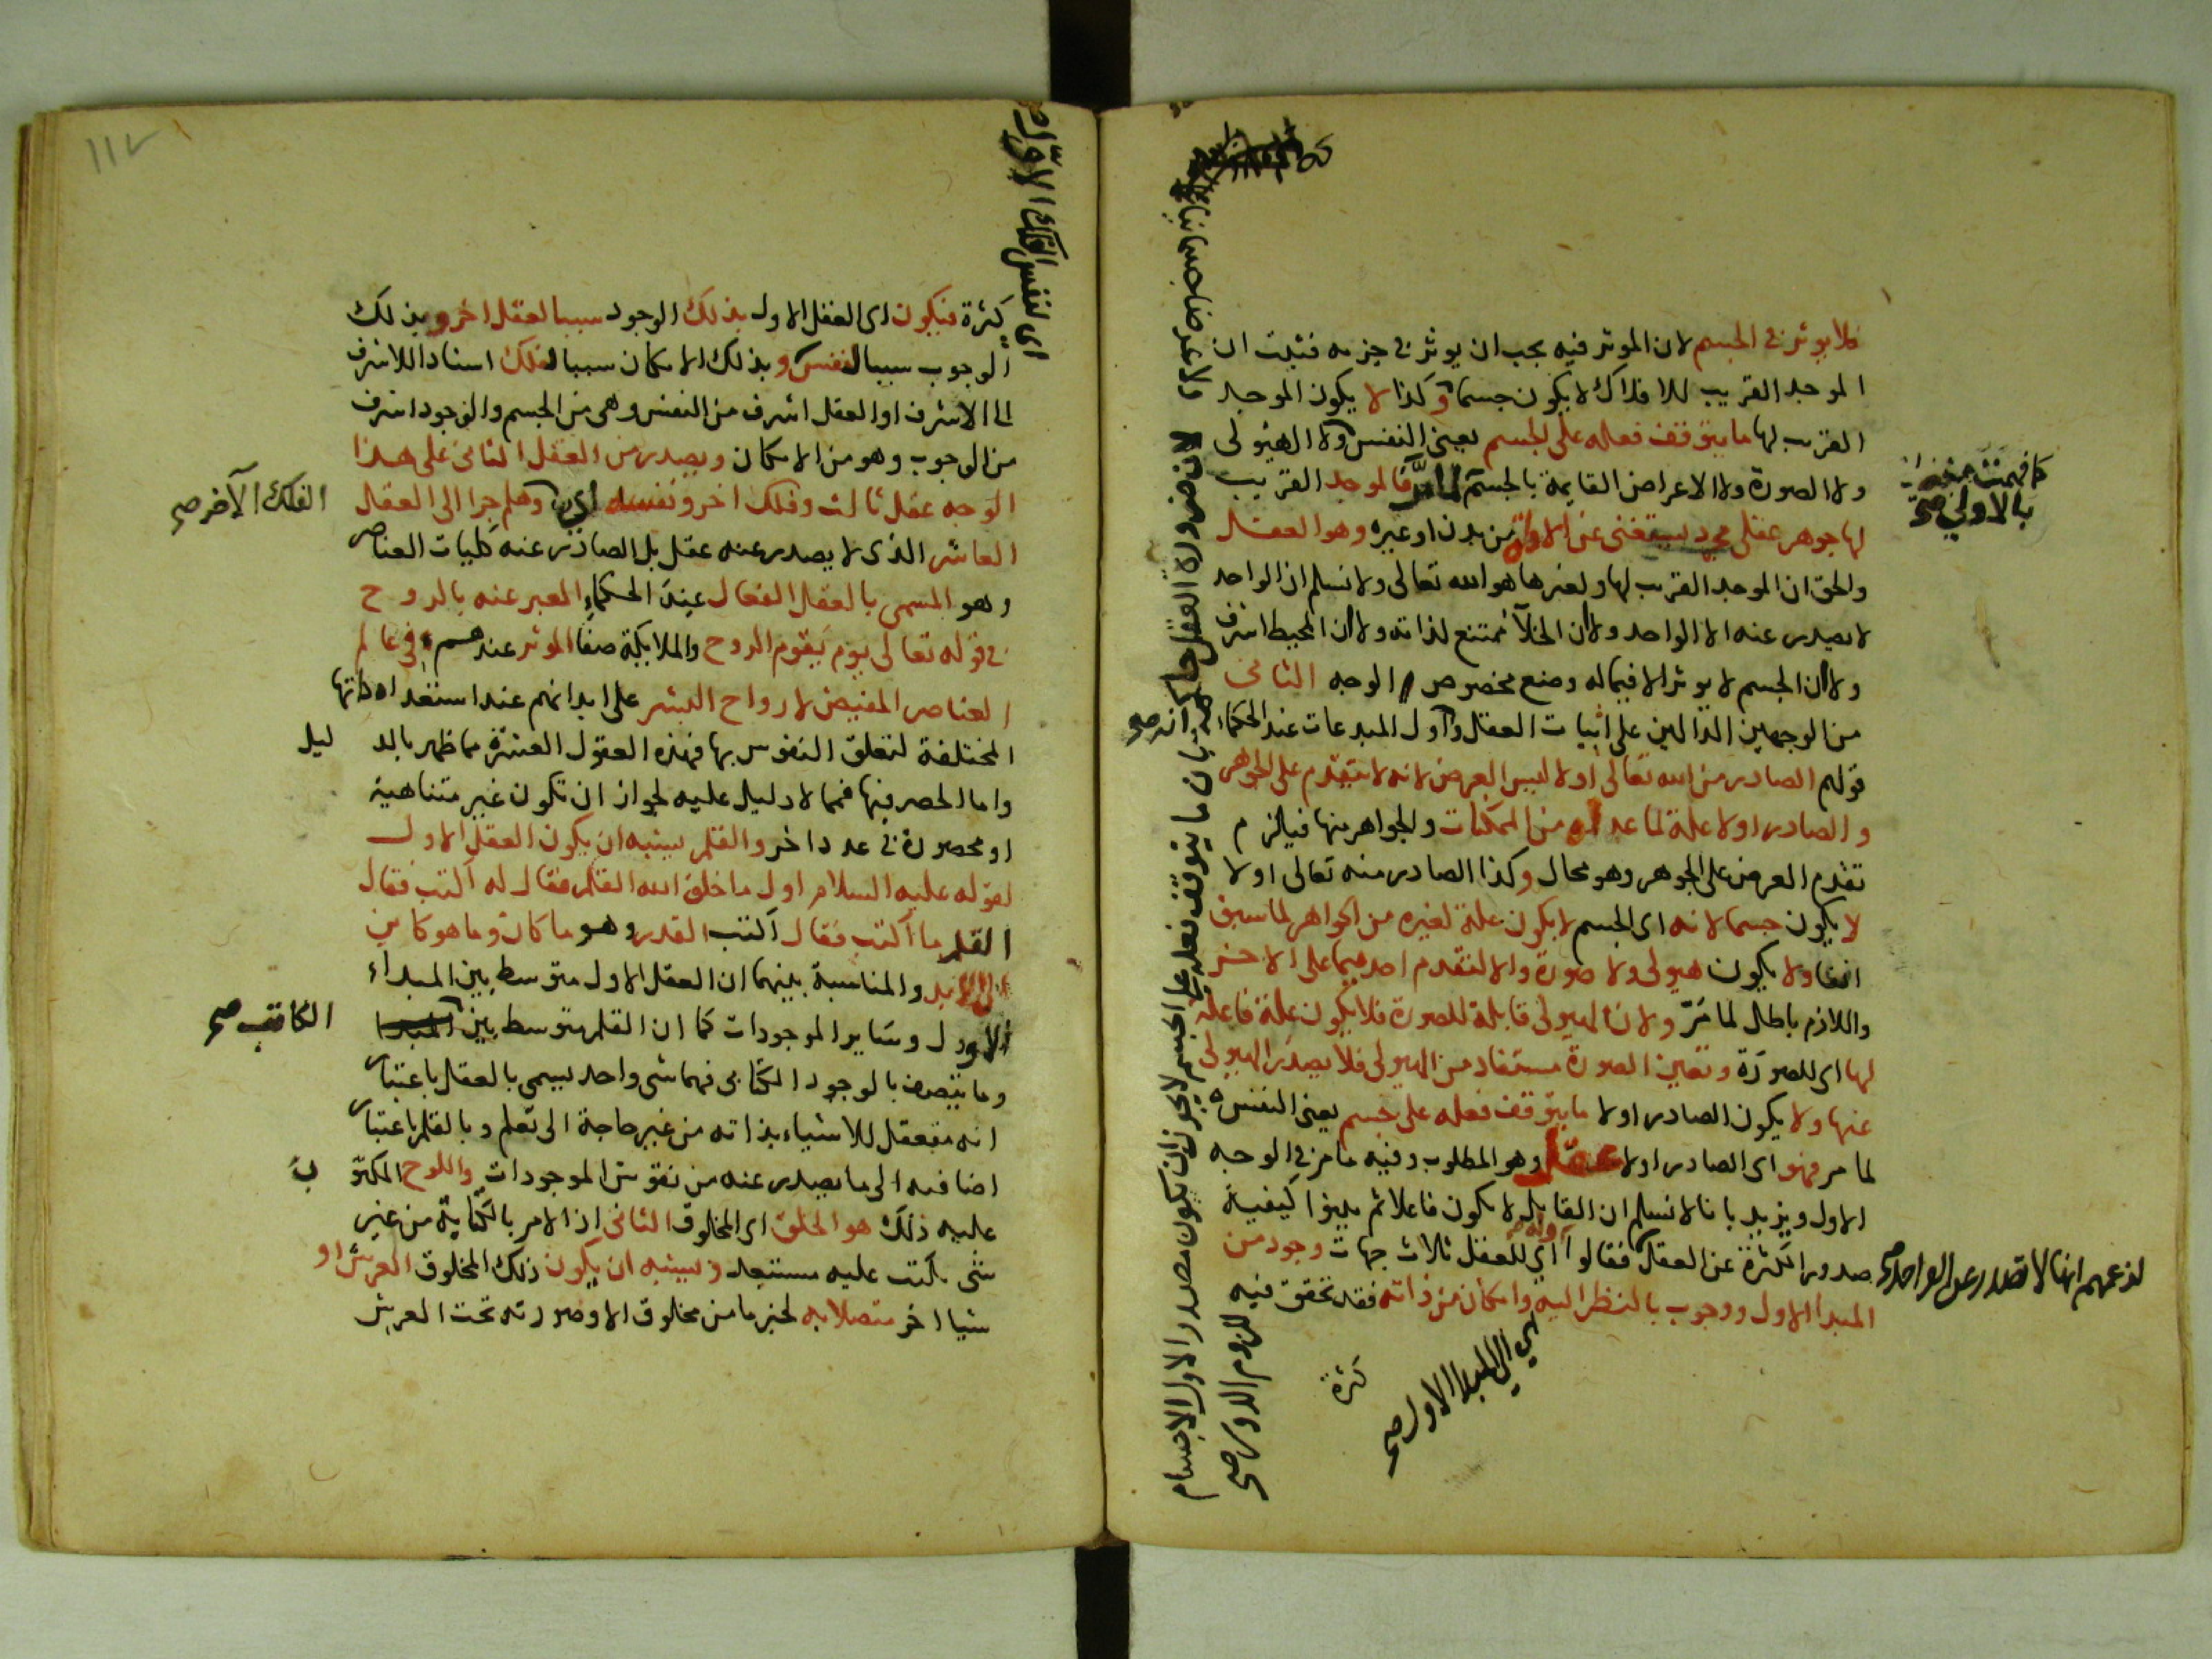 فلا يوثر في الجسم لان الموثر فيه يجب ان يوثر في جزيه فثبت ان
الموجد القريب للافلاك لا يكون جسما وكذا لا يكون الموجد
القريب لها ما يتوقف فعله على الجسم يعني النفس ولا الهيولى
ولا الصورة ولا الاعراض القايمة بالجسم لما مر فالموجد القريب
لها جوهر عقلي مجرد يستغني عن الالة من بدن او غيره وهو العقل
والحق ان الموجد القريب لها ولغيرها هو الله تعالى ولا نسلم ان الواحد
لا يصدر عنه الا الواحد ولا ان الخلآ ممتنع لذاته ولا ان المحيط اشرف
ولا ان الجسم لا يوثر الا فيما له وضع مخصوص الوجه الثاني
من الوجهين الدالين على اثبات العقل وانه اول المبدعات عند الحكماء
قولهم الصادر من الله تعالى اولا ليس العرض لانه لا يتقدم على الجوهر
والصادر اولا علة لما عداه من الممكنات والجواهر منها فيلزم
تقدم العرض على الجوهر وهو محال وكذا الصادر منه تعالى اولا
لا يكون جسما لانه اي الجسم لا يكون علة لغيره من الجواهر لما سبق
انفا ولا يكون هيولى ولا صورة والا لتقدم احدهما على الاخر
واللازم باطل لما مرّ ولان الهيولى قابلة للصورة فلا يكون علة فاعلة
لها اي للصورة وتعين الصورة مستفاد من الهيولى فلا يصدر الهيولى
عنها ولا يكون الصادر اولا ما يتوقف فعله على جسم يعني النفس
لما مر فهو اي الصادر اولا عقل وهو المطلوب وفيه ما مر في الوجه
الاول ويزيد بانا لا نسلم ان القابل لا يكون فاعلا ثم بينوا كيفية
صدور الكثرة عن العقل فقالوا اي للعقل ثلاث جهات وجود من
المبدا الاول ووجوب بالنظر اليه وامكان من ذاته فقد تحقق فيه
كثرة
كما فهمت
بالاولى صح
انه صح
لزعمهم انها لا تصدر عن الواحد صح
اي الى المبدا الاول صح
ولا عرضا جسمانيا
لان ضرورة العقل حاكمة بان ما يتوقف فعله على الجسم لا يجوز ان يكون مصدر الاول الاجسام
للزوم الدور صح
كثرة فيكون اى العقل الاول بذلك الوجود سببا لعقل اخر وبذلك
الوجوب سببا لنفس وبذلك الامكان سببا لفلك اسنادا للاشرف
الى الاشرف اذ العقل اشرف من النفس وهي من الجسم والوجود اشرف
من الوجوب وهو من الامكان ويصدر من العقل الثاني على هذا
الوجه عقل ثالث وفلك اخر ونفسه اي وهلم جرا الى العقل
العاشر الذى لا يصدر عنه عقل بل الصادر عنه كليات العناصر
وهو المسمى بالعقل الفعال عند الحكماء المعبر عنه بالروح
في قوله تعالى يوم يقوم الروح والملايكة صفا الموثر عندهم في عالم
العناصر المفيض لارواح البشر على ابدانهم عند استعداداتها
المختلفة لتعلق النفوس بها فهذه العقول العشرة مما ظهر بالدليل
واما الحصر فيها فمما لا دليل عليه لجواز ان تكون غير متناهية
او محصورة في عدد اخر والقلم يشبه ان يكون العقل الاول
لقوله عليه السلام اول ما خلق الله القلم فقال له اكتب فقال
القلم ما اكتب فقال اكتب القدر وهو ما كان وما هو كاين
الى الابد والمناسبة بينهما ان العقل الاول متوسط بين المبداء
الاول وساير الموجودات كما ان القلم متوسط بين المبدا
وما يتصف بالوجود الكتابى فهما شى واحد يسمى بالعقل باعتبار
انه متعقل للاشياء بذاته من غير حاجة الى تعلم وبالقلم باعتبار
اضافيه الى ما يصدر عنه من نقوش الموجودات واللوح المكتوب
عليه ذلك هو الخلق اى المخلوق الثانى اذ الامر بالكتابة من غير
شى يكتب عليه مستبعد ويشبه ان يكون ذلك المخلوق العرش او
شيا اخر متصلا به لخبر ما من مخلوق الا وصورته تحت العرش
اى لنفس الفلك الاول صح
الفلك الآخر صح
الكاتب صح